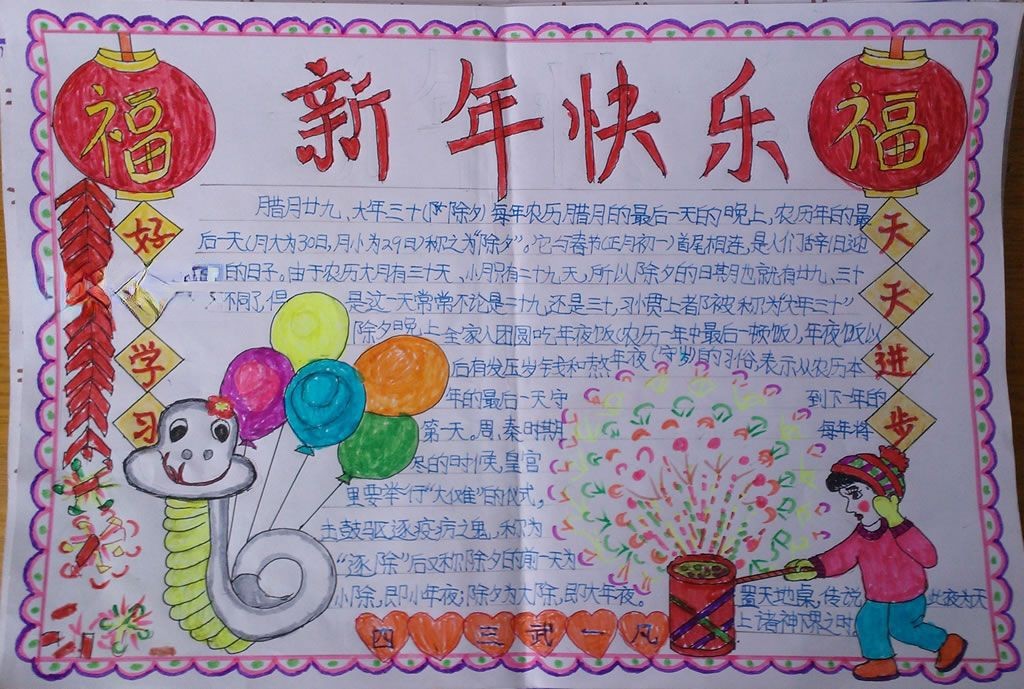 新年快乐
福
福
好
学
习
天
天
进
步
腊月廿九、大年三十(除夕)每年农历腊月的最后一天的晚上,农历年的最
后一天(月大为30日,月小为29日)称之为“除夕”。它与春节(正月初一)首尾相连,是人们辞旧迎
的日子。由于农历大月有三十天、小月只有二十九天,所以除夕的日期也就有廿九、三十
不同了,但是这一天常常不论是二十九还是三十,习惯上都被称为“大年三十”
除夕晚上全家人团圆吃年夜饭(农历一年中最后一顿饭),年夜饭以
后有发压岁钱和熬年夜(守岁)的习俗,表示从农历本
年的最后一天守到下一年的
第一天。周、秦时期每年将
的时候,皇宫
里要举行“大傩”的仪式,
击鼓驱逐疫疠之鬼,称为
“逐除”后又称除夕的前一天为
小除,即小年夜;除夕为大除,即大年夜。
置天地桌,传说此夜为天
上诸神降之时
四三武一凡